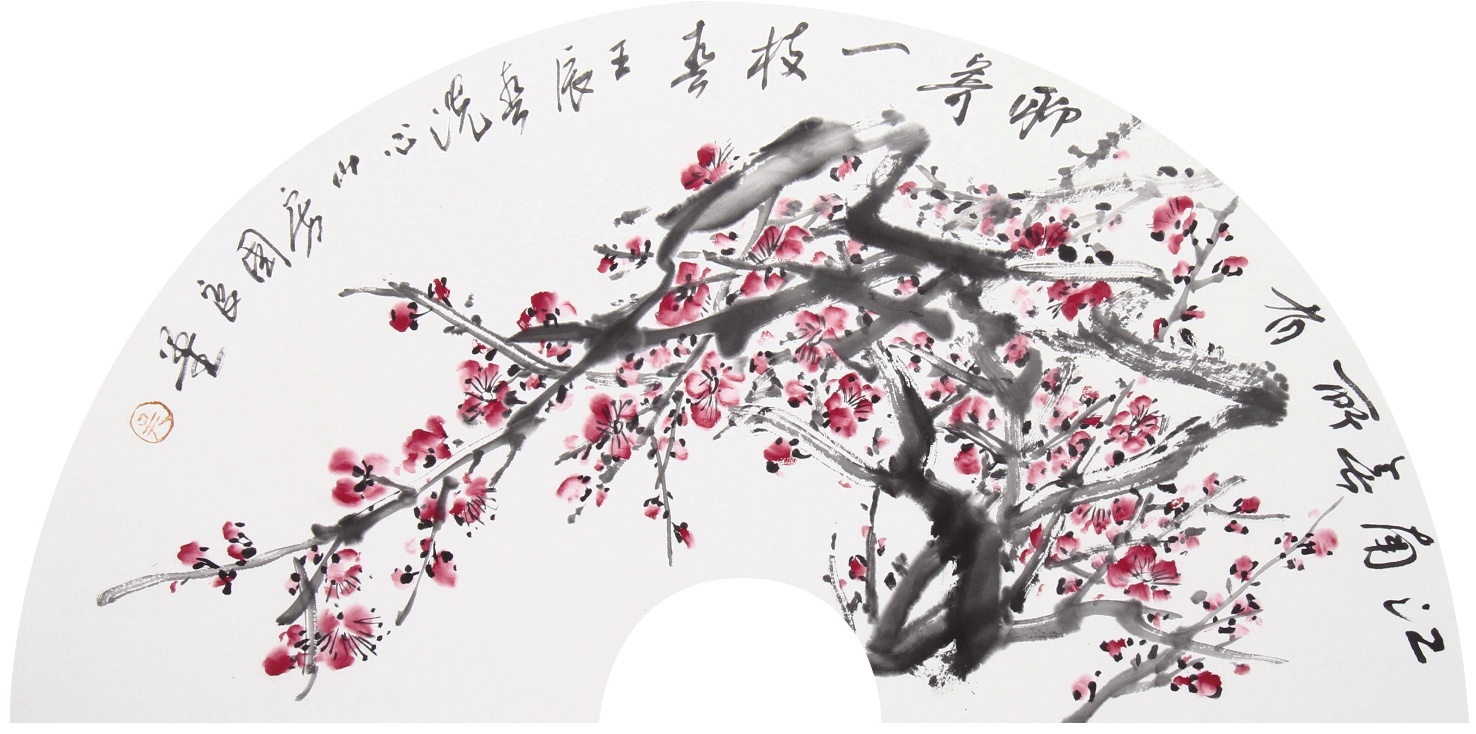 江南无所有
聊寄一枝春
壬辰春洗心山房国良笔